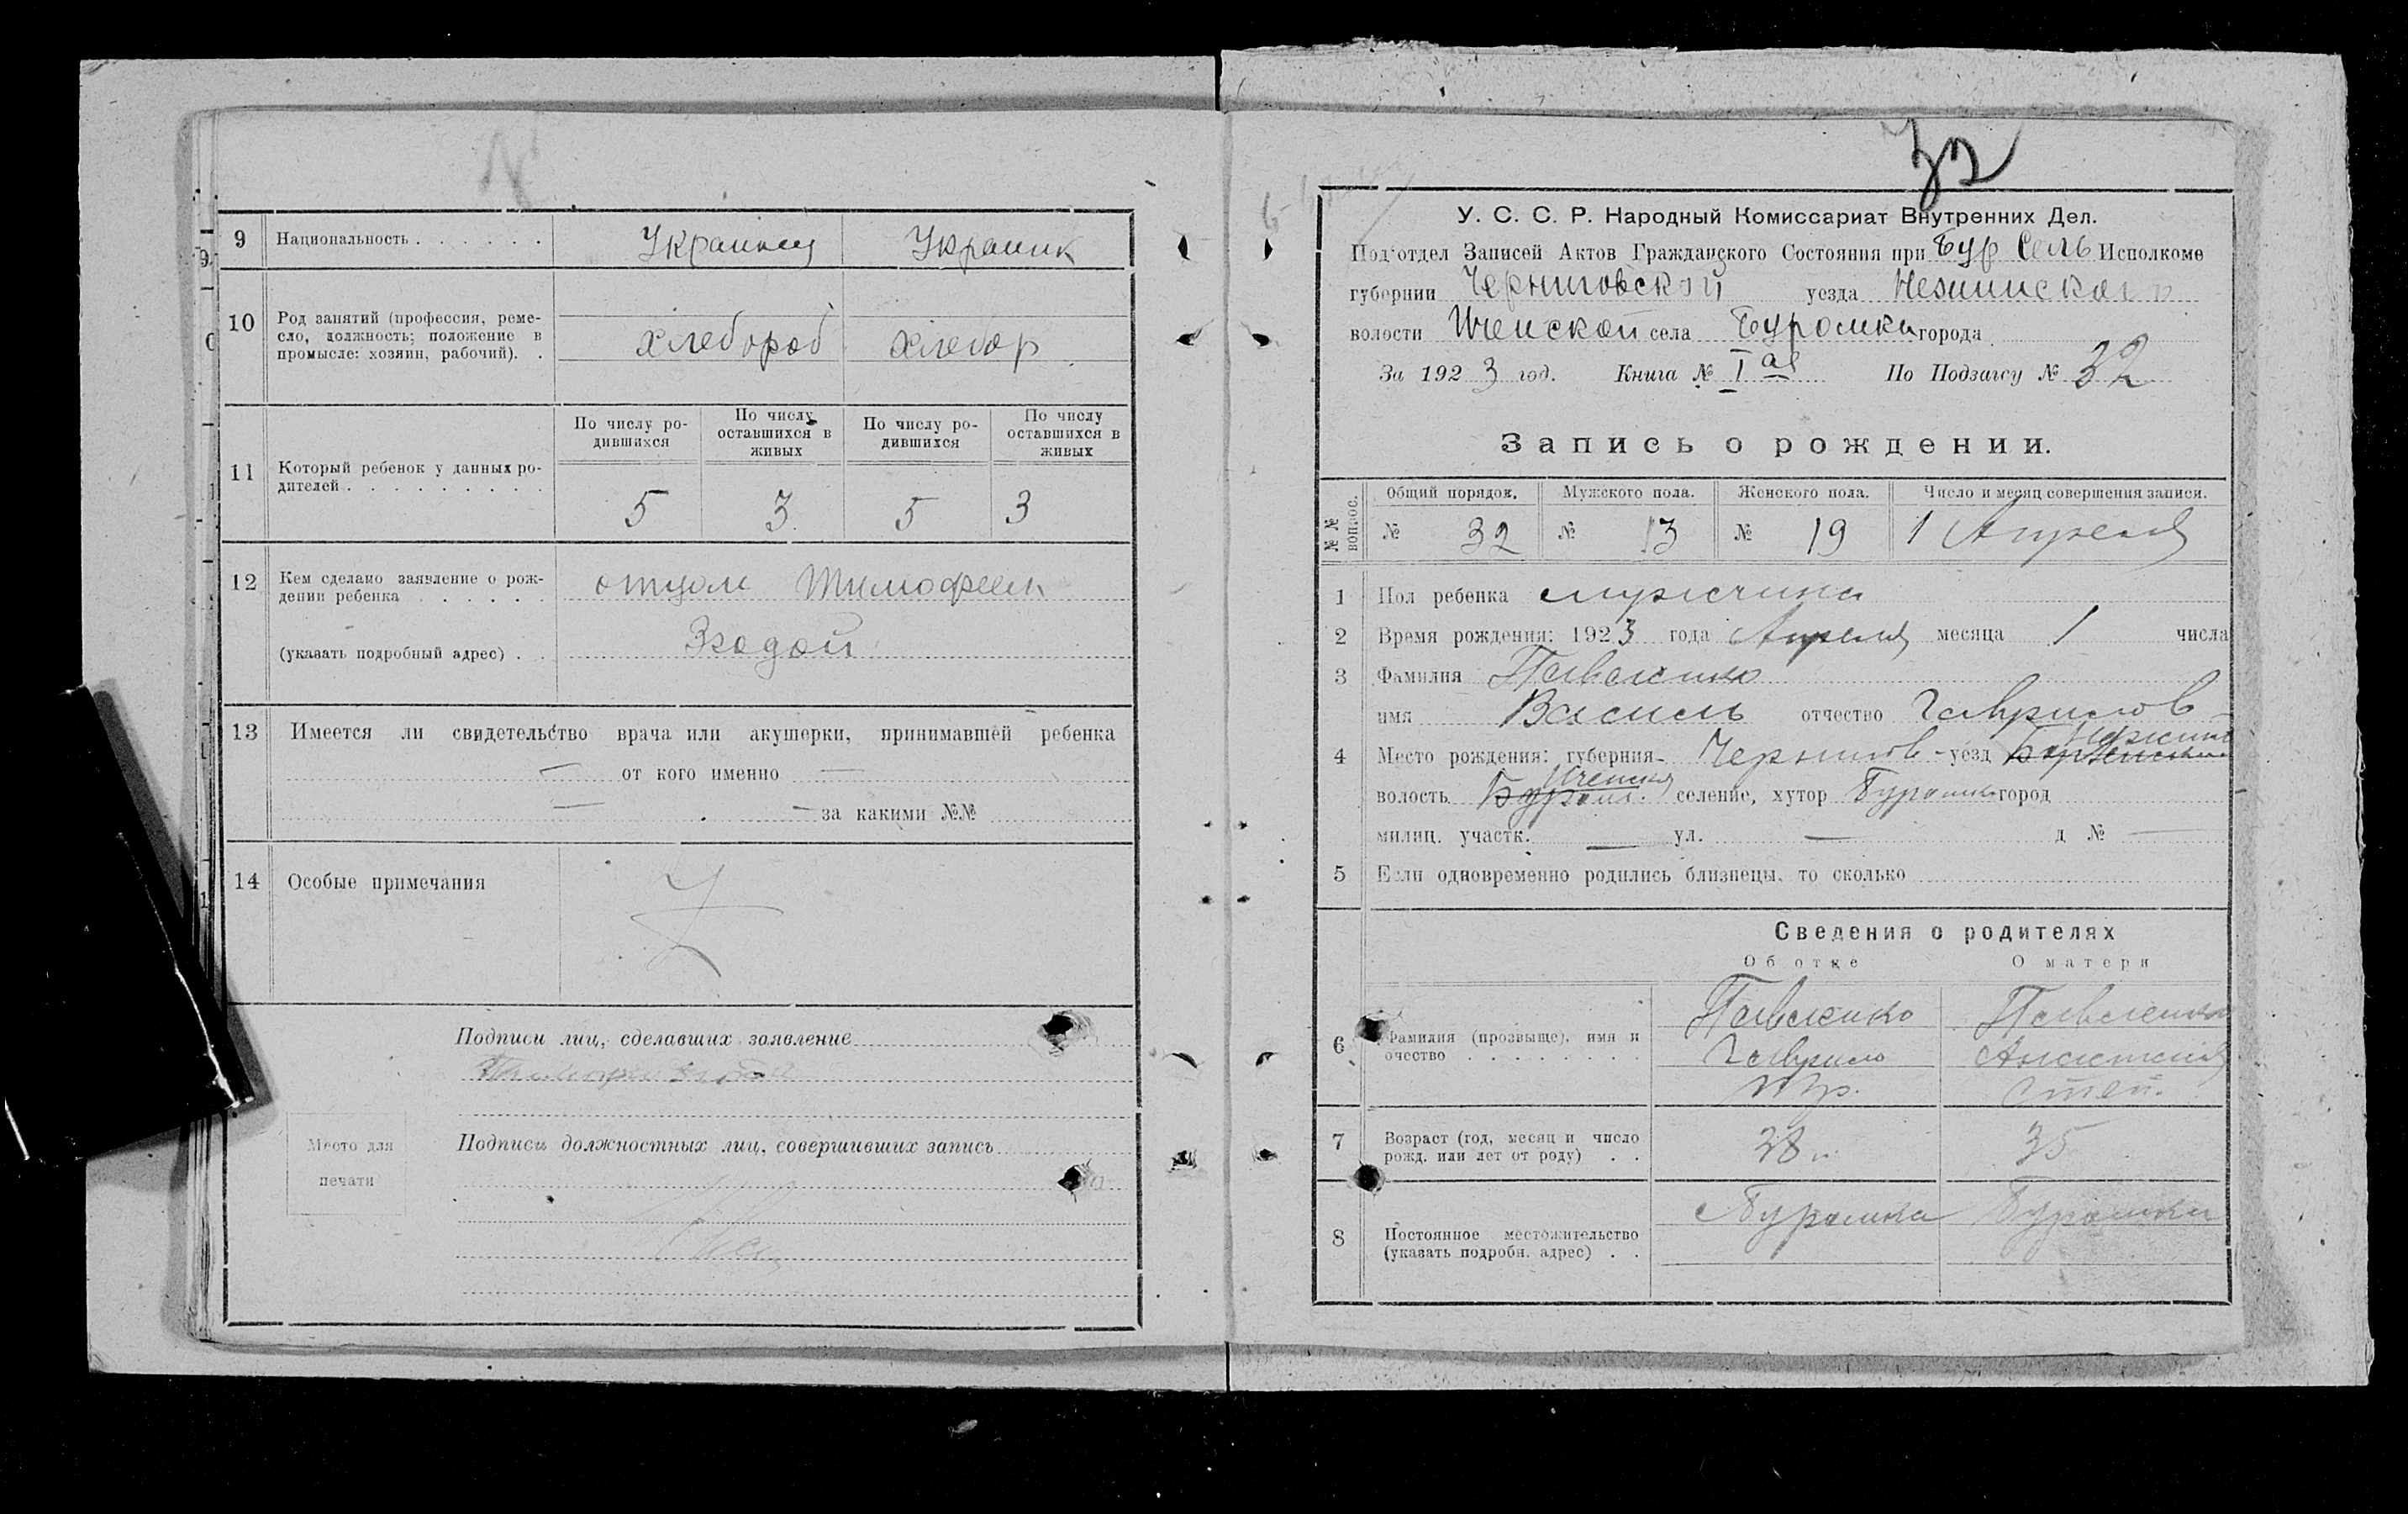 9 Национальность . . . . . . Украинец Украинк
10 Род занятий (профессия, реме-
сло, должность; положение в
промысле: хозяин, рабочий). . хлебороб хлебор
11 Который ребенок у данных ро-
дителей . . . . . . . . .
По числу ро-
дившихся
По числу
оставшихся в
живых
По числу ро-
дившихся
По числу
оставшихся в
живых
5 3 5 3
12 Кем сделано заявление о рож-
дении ребенка . . . . . отцом Тимофеем
(указать подробный адрес) . .
13 Имеется ли свидетельство врача или акушерки, принимавшей ребенка
— от кого именно —
— — за какими №№
14 Особые примечания
Подписи лиц, сделавших заявление
Место для
печати
Подписи должностных лиц, совершивших запись
32
У. С. С. Р. Народный Комиссариат Внутренних Дел.
Под'отдел Записей Актов Гражданского Состояния при Бур Сель Исполкоме
губернии Черниговской уезда Нежинского
волости Иченской села Буромки города
За 1923 год. Книга № Iая По Подзагсу № 32
Запись о рождении.
№ № вопрос.
Общий порядок. Мужского пола. Женского пола. Число и месяц совершения записи.
№ 32 № 13 № 19 1 Апреля
1 Пол ребенка мужчина
2 Время рождения: 1923 года Апреля месяца 1 числа
3 Фамилия Павленко
имя Василь отчество Гаврилов
4 Место рождения: губерния Чернигов - уезд Нежин
волость Иченская селение, хутор Буромка город
милиц. участк. — ул. — д № —
5 Если одновременно родились близнецы, то сколько
Сведения о родителях
Об отце О матери
6 Фамилия (прозвыще), имя и
очество . . . . . . . .
Павленко Павленко
Гаврило Анастасия
Степ.
7 Возраст (год, месяц и число
рожд. или лет от роду) . . 38 35
8 Постоянное местожительство
(указать подробн. адрес) . . Буромка Буромка